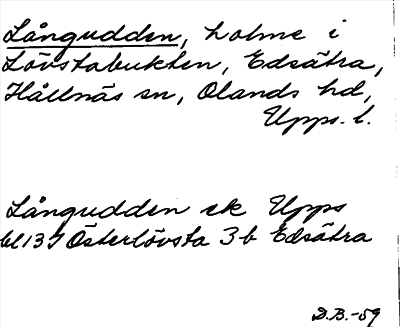 Långudden, holme i
Lövstabukten, Edsätra,
Hållnäs sn, Olands hd,
Upps. l.
Långudden ek Upps
bl 137 Österlövsta 3b Edsätra
D.B.-59